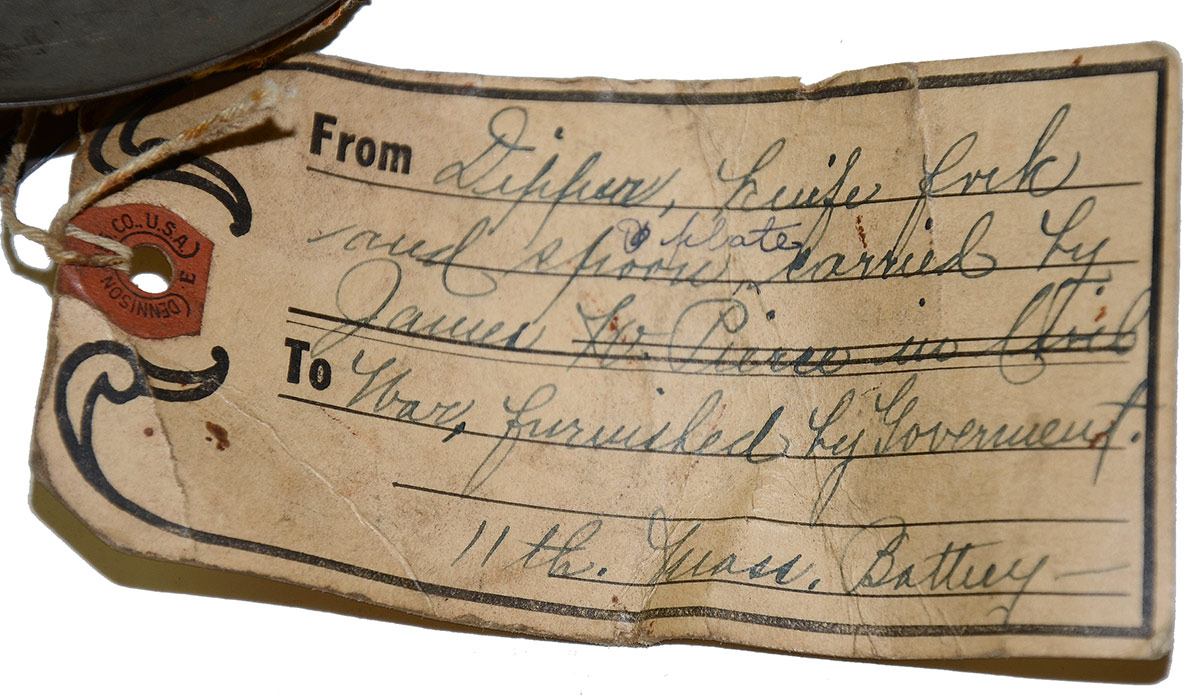 CO., U.S.A.
DENNISON
From Dipper, knife fork
& plate
and spoon, carried by
James W. Pierce in Civil
To War, furnished by Goverment.
11th. Mass. Battery —